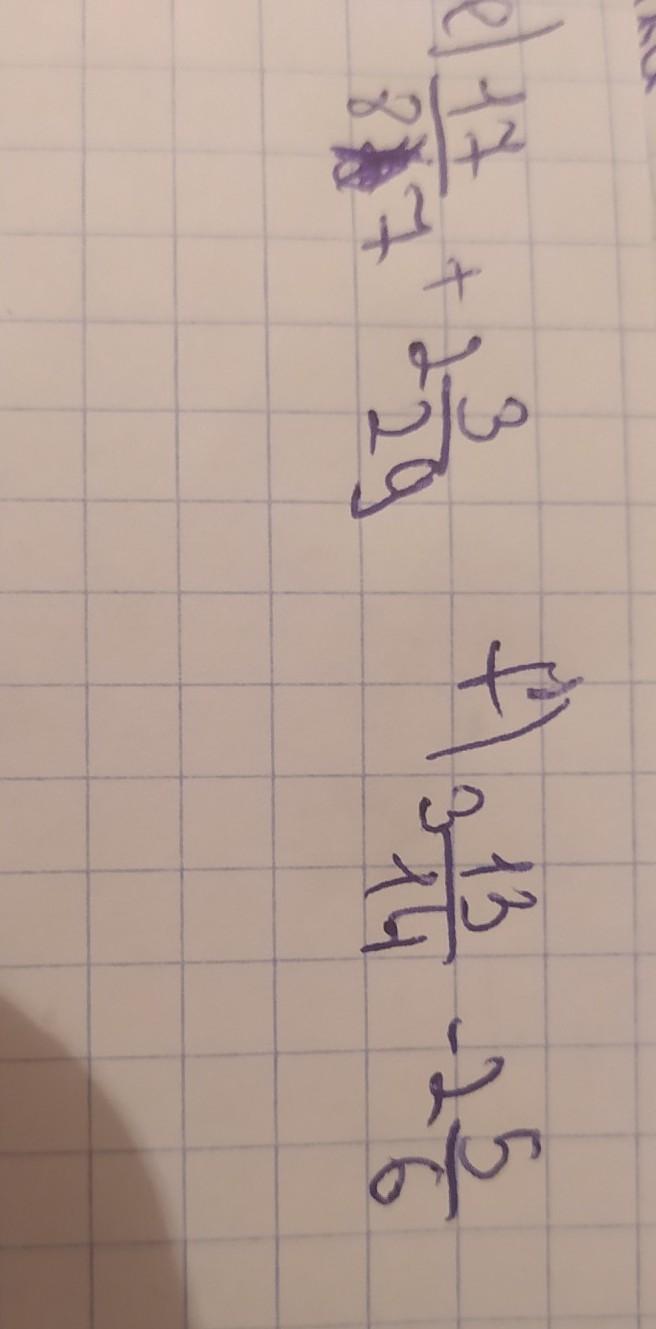 e) 17/87 + 2 3/29 f) 3 13/14 - 2 5/6